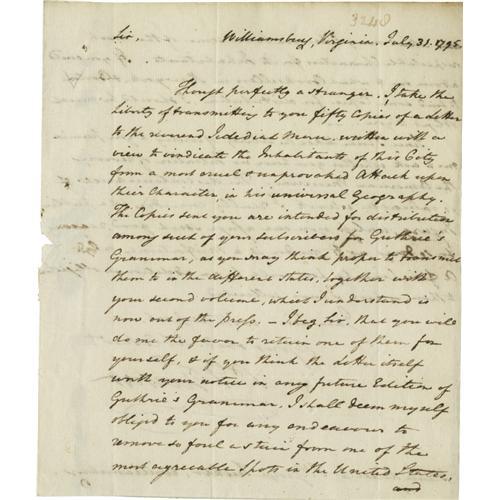 3248
Sir, Williamsburg, Virginia, July 31. 1795.
Though perfectly a stranger, I take the
liberty of transmitting to you fifty Copies of a Letter
to the reverend Jedediah Morse, written with a
view to vindicate the Inhabitants of this City
from a most cruel & unprovoked Attack upon
their Character, in his universal Geography.
The Copies sent you are intended for distribution
among such of your subscribers for Guthrie's
Grammar, as you may think proper to transmit
them to in the different States, together with
your second volume, which I understand is
now out of the press. — I beg, Sir, that you will
do me the favor to retain one of them for
yourself, & if you think the Letter itself
worth your notice in any future Edition of
Guthrie's Grammar, I shall deem myself
oblig'd to you for any endeavour to
remove so foul a stain from one of the
most agreeable Spots in the United States,
and